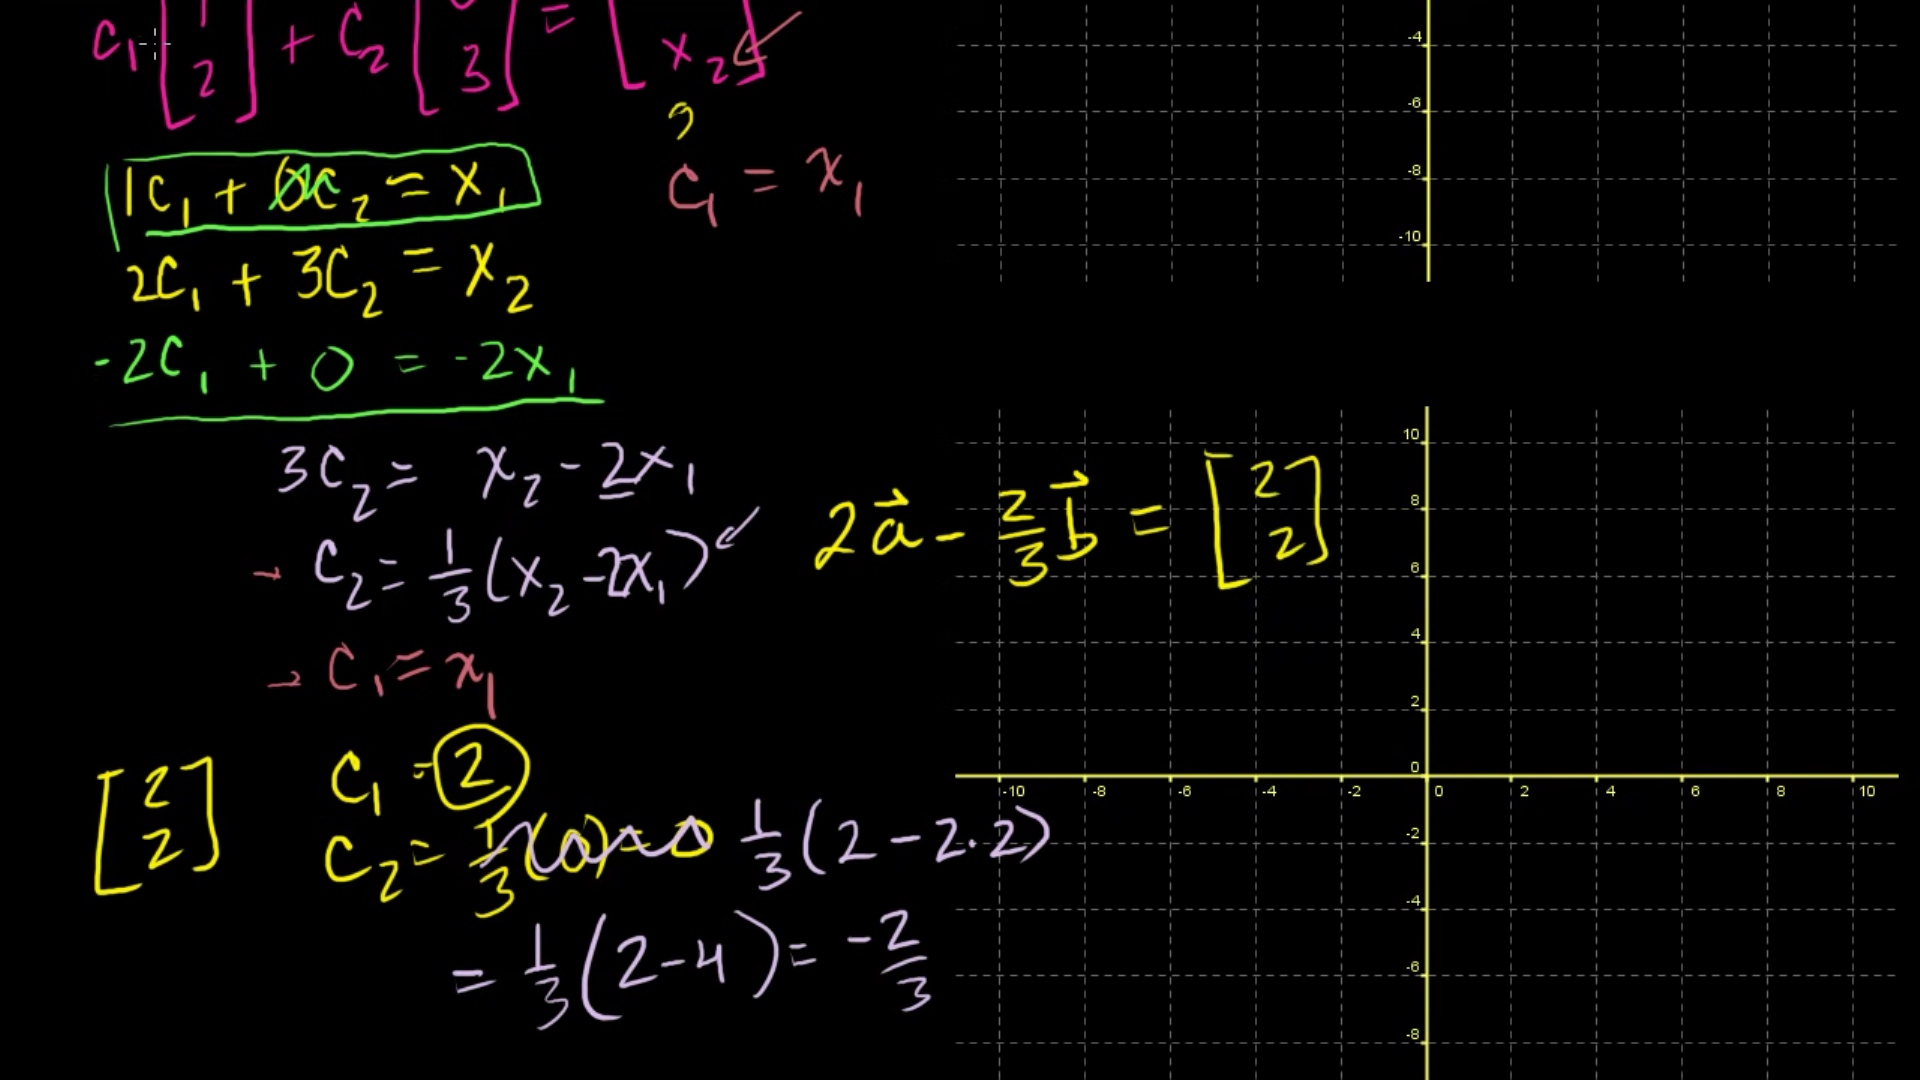 c₁[1 2] + c₂[0 3] = [ x₂]
?
1c₁ + 0c₂ = x₁
c₁ = x₁
2c₁ + 3c₂ = x₂
-2c₁ + 0 = -2x₁
3c₂ = x₂ - 2x₁
→ c₂ = 1/3 (x₂ - 2x₁)
2a⃗ - 2/3 b⃗ = [2 2]
→ c₁ = x₁
[2 2]
c₁ = 2
c₂ = 1/3 (0) = 0 1/3 (2 - 2·2)
= 1/3 (2 - 4) = -2/3
-4
-6
-8
-10
10
8
6
4
2
0
-10 -8 -6 -4 -2 0 2 4 6 8 10
-2
-4
-6
-8